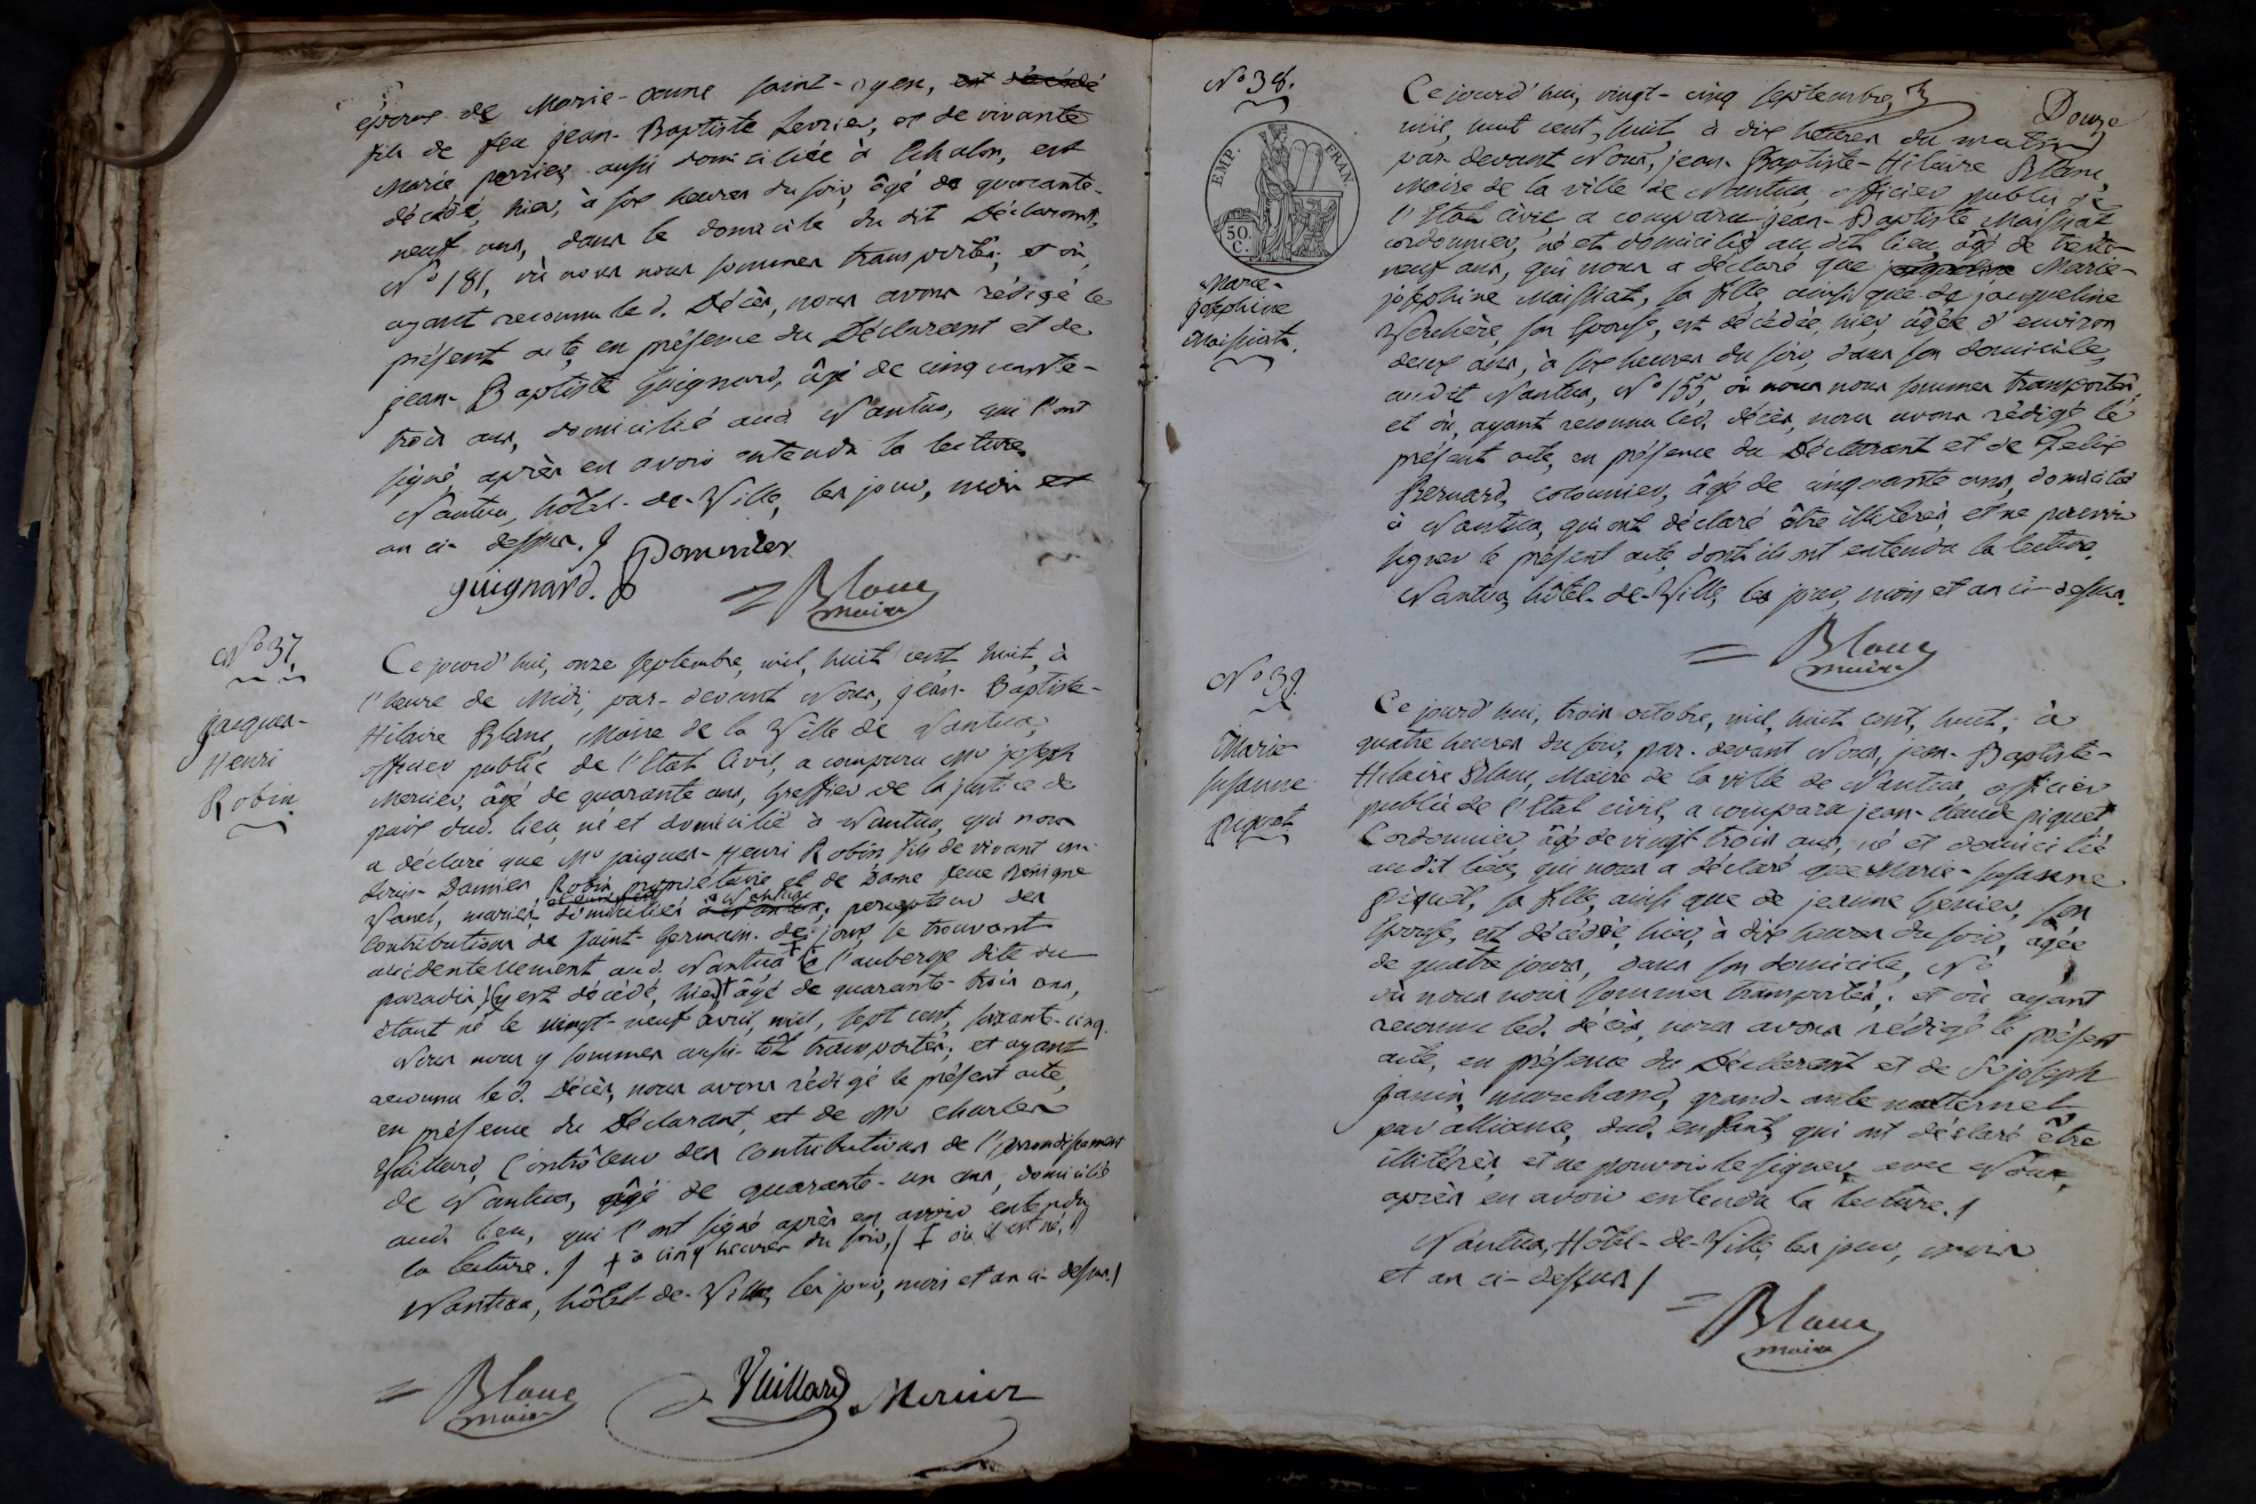 époux de Marie-Anne Saint-oyen, est décédé
fils de feu jean-Baptiste Levrier, et de vivante
Marie perrier aussi domiciliée à Echalon, est
décédé, hier, à six heures du soir, âgé de quarante-
neuf ans, dans le domicile du dit Déclarant,
N° 181, où nous nous sommes transportés; et où,
ayant reconnu le d. Décès, nous avons rédigé le
présent acte, en présence du Déclarant et de
jean-Baptiste Guignard, âgé de cinquante-
trois ans, domicilié aud. Nantua, qui l'ont
signé, après en avoir entendu la lecture.
Nantua, hôtel-de-Ville, les jour, mois et
an ci-dessus./
guignard.
Blanc
maire
N° 37.
jacques-
Henri
Robin
Ce jourd'hui, onze septembre, mil, huit cent, huit, à
l'heure de Midi, par-devant Nous, jean-Baptiste-
Hilaire Blanc, Maire de la Ville de Nantua,
officier public de l'Etat Civil, a comparu Mr joseph
Mercier, âgé de quarante ans, Greffier de la justice de
paix dud. lieu, né et domicilié à Nantua, qui nous
a déclaré que Mr jacques-Henri Robin fils de vivant
Damien Robin propriétaire et de Dame feue Benigne
mariés, domiciliés à Nantua; percepteur des
Contributions de Saint-Germain-de-joux, se trouvant
accidentellement aud. Nantua ‡ à l'auberge dite du
paradis, y est décédé, hier † âgé de quarante-trois ans,
étant né le vingt-neuf avril, mil, sept cent, soixante-cinq.
Nous nous y sommes aussi-tôt transportés; et ayant
reconnu le d. Décès, nous avons rédigé le présent acte,
en présence du Déclarant, et de Mr Charles
Vuillard, Contrôleur des Contributions de l'arrondissement
de Nantua, âgé de quarante-un ans, domicilié
aud. lieu, qui l'ont signé après en avoir entendu
la lecture./ † à cinq heures du soir,/ ‡ où il est né,/
Nantua, hôtel-de-Ville, les jour, mois et an ci-dessus./
Blanc
maire
Vuillard
Mercier
Douze
N° 38.
EMP. FRAN.
50.
C.
Marie-
josephine
Maissiat.
Ce jourd'hui, vingt-cinq septembre,
mil, huit cent, huit, à dix heures du matin,
par-devant Nous, jean-Baptiste-Hilaire Blanc,
Maire de la ville de Nantua, officier public de
l'Etat civil, a comparu jean-Baptiste Maissiat
cordonnier, né et domicilié au dit lieu, âgé de trente-
neuf ans, qui nous a déclaré que Marie-
josephine Maissiat, sa fille, ainsi que de jacqueline
Verchère, son Epouse, est décédée, hier, âgée d'environ
deux ans, à six heures du soir, dans son domicile,
audit Nantua, N° 155, où nous nous sommes transportés,
et où, ayant reconnu led. décès, nous avons rédigé le
présent acte, en présence du Déclarant et de Felix
Bernard, cotonnier, âgé de cinquante ans, domicilié
à Nantua, qui ont déclaré être illitérés, et ne pouvoir
signer le présent acte, dont ils ont entendu la lecture.
Nantua, hôtel-de-Ville, les jour, mois et an ci-dessus.
Blanc
maire
N° 39.
Marie
Susanne
piquet
Ce jourd'hui, trois octobre, mil, huit cent, huit, à
quatre heures du soir, par-devant Nous, jean-Baptiste-
Hilaire Blanc, Maire de la ville de Nantua, officier
public de l'Etat civil, a comparu jean-Claude piquet
Cordonnier, âgé de vingt trois ans, né et domicilié
audit lieu, qui nous a déclaré que Marie-Susanne
piquet, sa fille, ainsi que de jeanne son
Epouse, est décédée, hier, à dix heures du soir, âgée
de quatre jours, dans son domicile, N°
où nous nous sommes transportés; et où, ayant
reconnu led. décès, nous avons rédigé le présent
acte, en présence du Déclarant et de Sr joseph
janin, marchand, grand-oncle maternel,
par alliance, dud. enfant, qui ont déclaré être
illitérés, et ne pouvoir le signer, avec Nous,
après en avoir entendu la lecture./
Nantua, Hôtel-de-Ville, les jour, mois
et an ci-dessus/
Blanc
maire